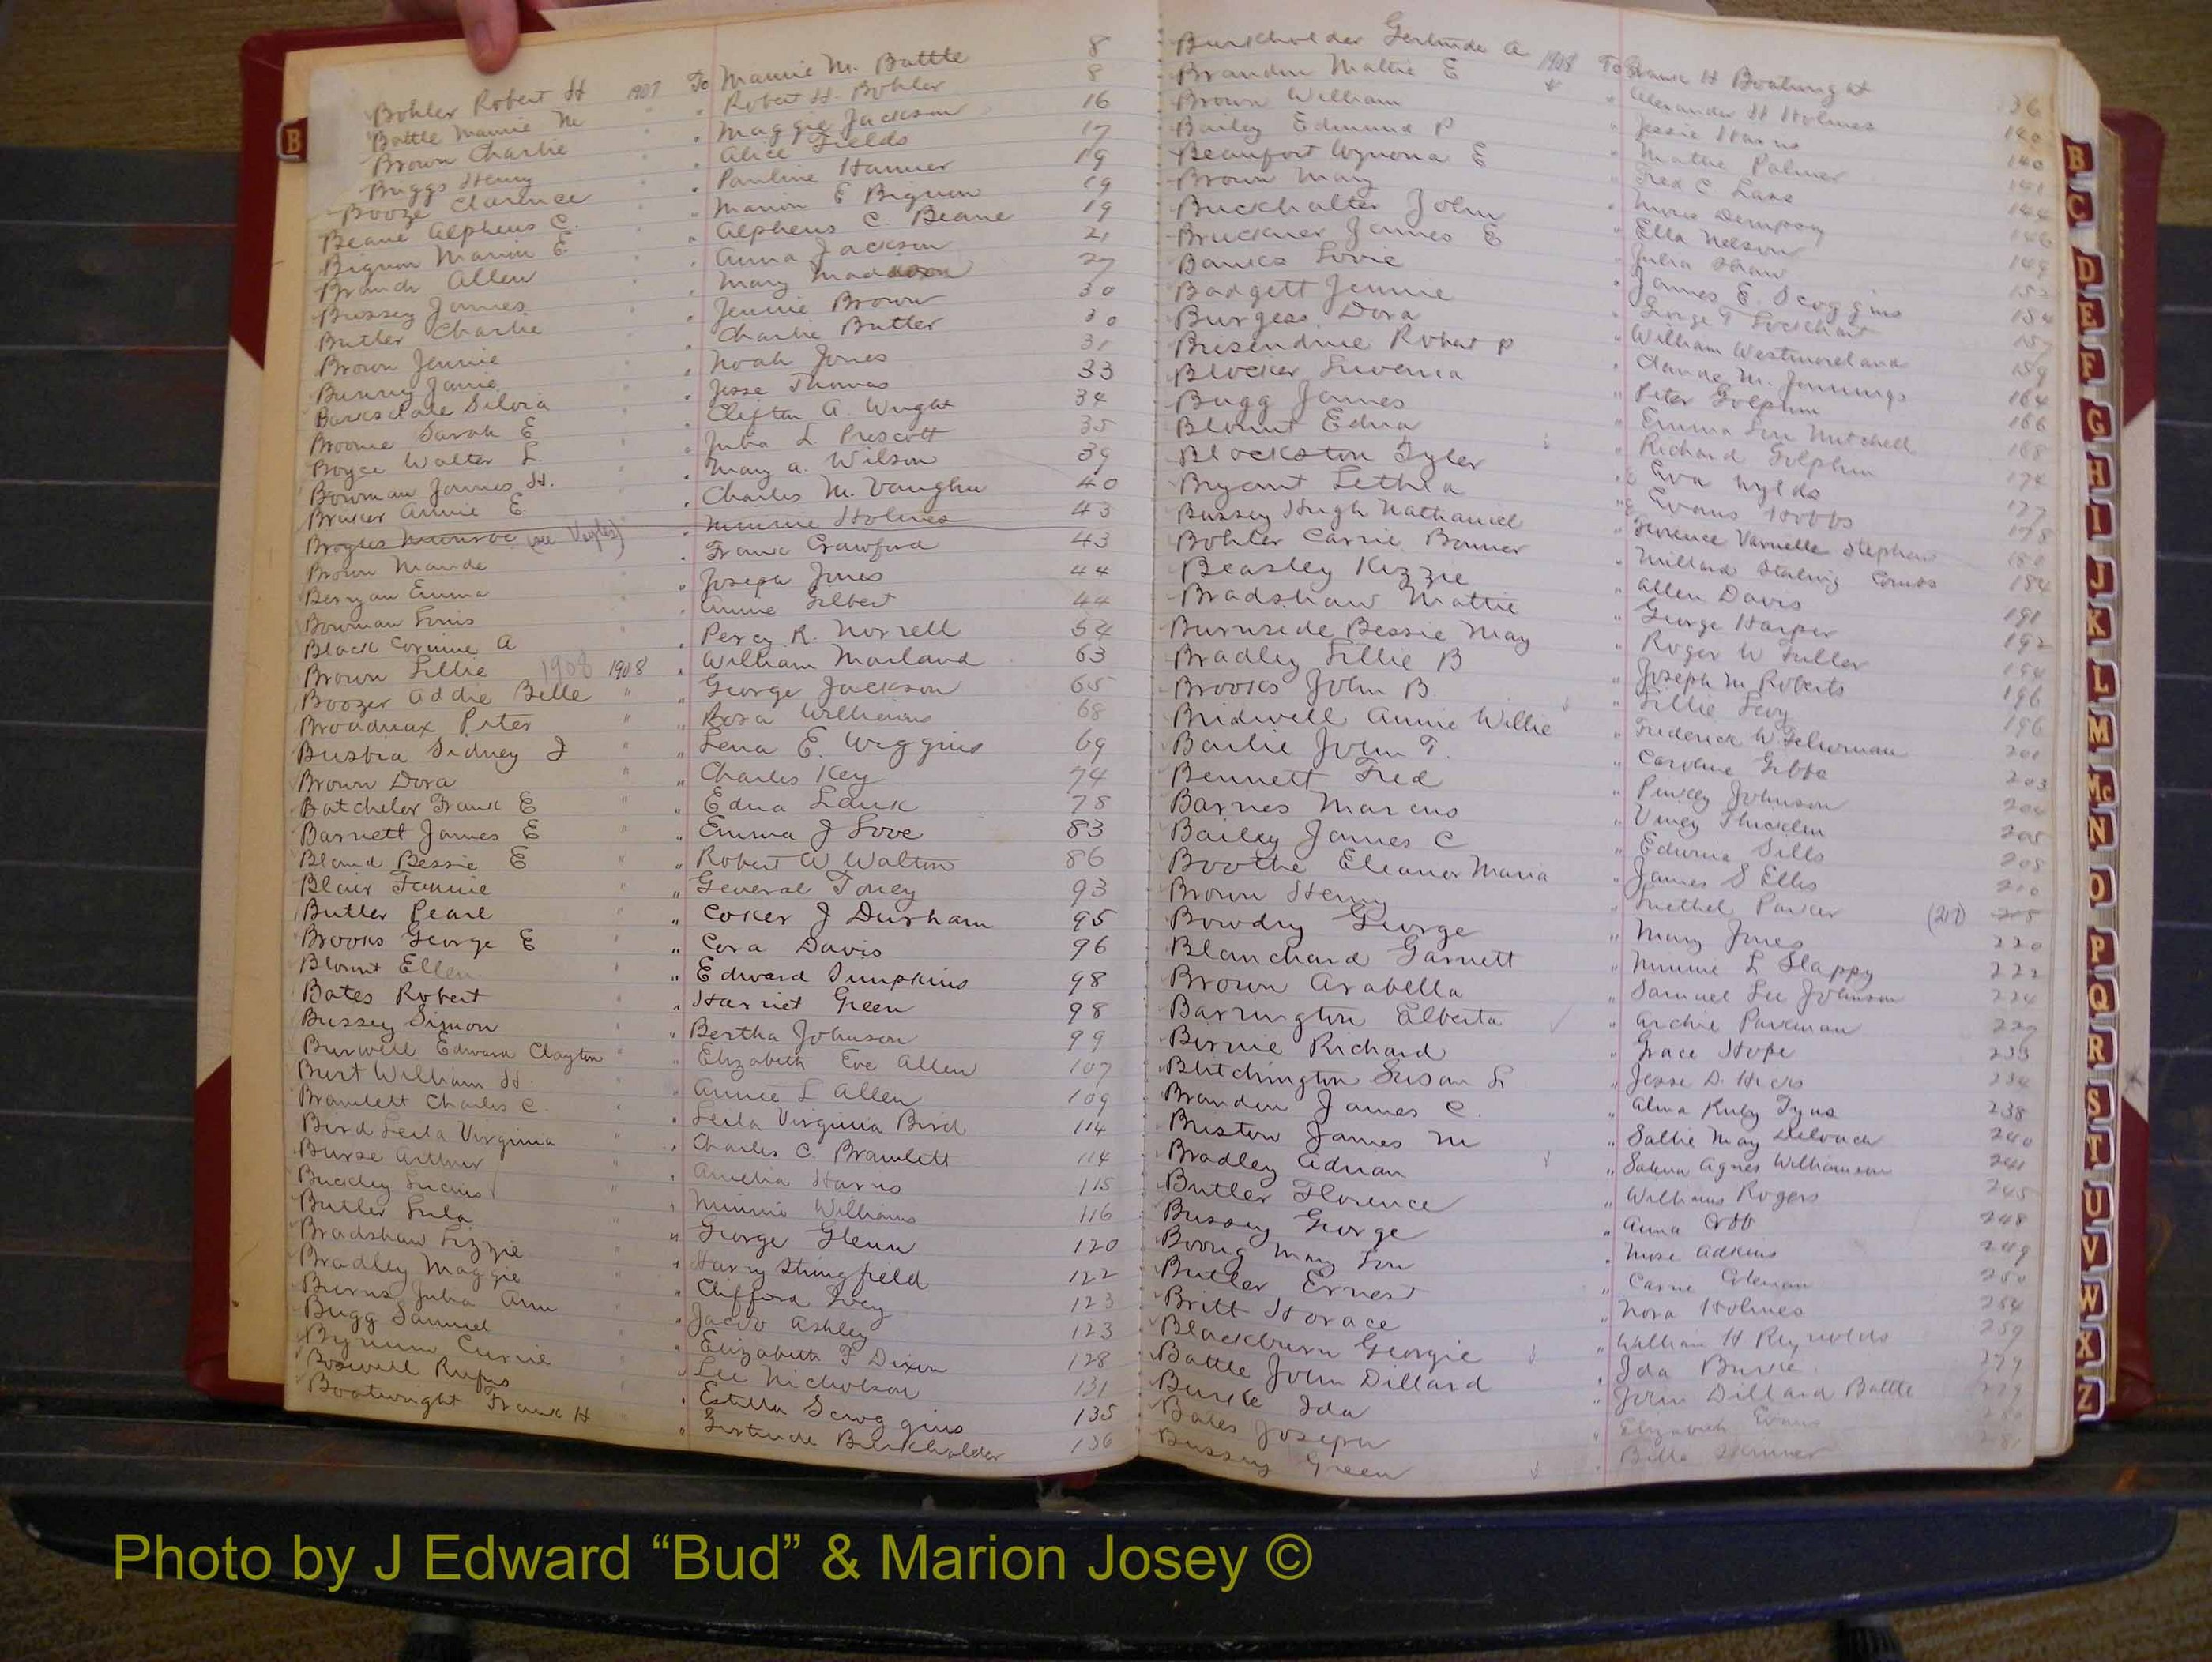 B
Bohler Robert H 1907 To Mamie M. Battle 8
Battle Mamie M " Robert H. Bohler 8
Brown Charlie " Maggie Jackson 16
Buggs Henry " Alice Fields 17
Booze Clarence " Pauline Hamner 19
Beane Alpheus C. " Marion E Bignon 19
Bignon Marion E. " Alpheus C. Beane 19
Branch Allen " Anna Jackson 21
Bussey James " Mary Madison 27
Butler Charlie " Jennie Brown 30
Brown Jennie " Charlie Butler 30
Bunny Janie " Noah Jones 31
Barksdale Silvia " Jesse Thomas 33
Broome Sarah E " Clifton A. Wright 34
Boyce Walter L. " Julia L. Prescott 35
Bowman James H. " Mary A. Wilson 39
Bruker Annie E " Charles M. Vaughn 40
Broyles Munroe (see Vogles) " Minnie Holmes 43
Brown Maude " Frank Crawford 43
Berryan Emma " Joseph Jones 44
Bowman Louis " Annie Gilbert 44
Black Corinne A " Percy R. Norrell 54
Brown Lillie 1908 1908 " William Morland 63
Boozer Addie Belle " " George Jackson 65
Broadnax Peter " " Rosa Williams 68
Busbia Sidney J " " Lena E. Wiggins 69
Brown Dora " " Charles Key 74
Batchelor Frank E " " Edna Lauk 78
Barnett James E " " Emma J Love 83
Bland Bessie E " " Robert W Walton 86
Blair Fannie " General Toney 93
Butler Pearl " " Coker J Durham 95
Brooks George E " " Cora Davis 96
Blount Ellen " " Edward Simpkins 98
Bates Robert " " Harriet Green 98
Bussey Simon " " Bertha Johnson 99
Burwell Edward Clayton " " Elizabeth Eve Allen 107
Burt William H. " Annie L Allen 109
Bramlett Charles C. " " Leila Virginia Bird 114
Bird Leila Virginia " " Charles C. Bramlett 114
Burse Arthur " " Amelia Harris 115
Buckley Lucius " " Minnie Williams 116
Butler Lula " " George Glenn 120
Bradshaw Lizzie " " Harry Stringfield 122
Bradley Maggie " " Clifford Ivey 123
Burns Julia Ann " " Jacob Ashley 123
Bugg Samuel " " Elizabeth F Dixon 128
Bynum Currie " " Lee Nicholson 131
Boswell Rufus " " Estella Scroggins 135
Boatwright Frank H " Gertrude Burkholder 136
Burkholder Gertrude A 1908 To Frank H Boatwright 136
Brandon Mattie E " Alexander H Holmes 140
Brown William " Jessie Harris 140
Bailey Edmund P " Mattie Palmer 141
Beaufort Wynona E " Fred C Lass 144
Brown Mary " Moses Dempsey 146
Buckhalter John " Ella Nelson 149
Bruckner James E " Julia Shaw 152
Banks Lovie " James E. Scoggins 154
Badgett Jennie " George T Lockhart 157
Burgess Dora " William Westmoreland 159
Brisendine Robert P " Claude M. Jennings 164
Blocker Luvenia " Peter Golphin 166
Bugg James " Emma Lou Mitchell 168
Blount Edna " Richard Golphin 174
Blockston Tyler " Eva Wylds 177
Bryant Lethia " Evans Hobbs 178
Bussey Hugh Nathaniel " Florence Varnelle Stephens 180
Bohler Carrie Bonner " Millard Starling Combs 184
Beasley Kizzie " Allen Davis 191
Bradshaw Mattie " George Harper 192
Burnside Bessie May " Roger W Fuller 194
Bradley Lillie B " Joseph M Roberts 196
Brooks John B. " Lillie Levy 196
Bridwell Annie Willie " Frederick W Schurman 201
Bailie John T. " Caroline Gibbs 203
Bennett Fred " Pinkey Johnson 204
Barnes Marcus " Viney Thicklin 205
Bailey James C " Edwina Sills 208
Boothe Eleanor Maria " James S Ellis 210
Brown Henry " Luethel Parker (217) 215
Bowdry George " Mary Jones 220
Blanchard Garnett " Minnie L Slappy 222
Brown Arabella " Samuel Lee Johnson 224
Barrington Elberta " Archie Parkman 227
Bernie Richard " Grace Hope 233
Blitchington Susan L " Jesse D. Hicks 234
Brandon James C. " Alma Ruby Tyus 238
Buston James M " Sallie May DeLoach 240
Bradley Adrian " Salena Agnes Williamson 241
Butler Florence " Williams Rogers 245
Bussey George " Anna Cobb 248
Boong May Lou " Mose Adkins 249
Butler Ernest " Carrie Coleman 250
Britt Horace " Nora Holmes 254
Blackburn Georgie " William H Reynolds 259
Battle John Dillard " Ida Burke 279
Burke Ida " John Dillard Battle 279
Bates Joseph " Elizabeth Evans 280
Bussey Green " Bille Skinner 281
B
C
D
E
F
G
H
I
J
K
L
M
Mc
N
O
P
Q
R
S
T
U
V
W
X
Z
Photo by J Edward “Bud” & Marion Josey ©